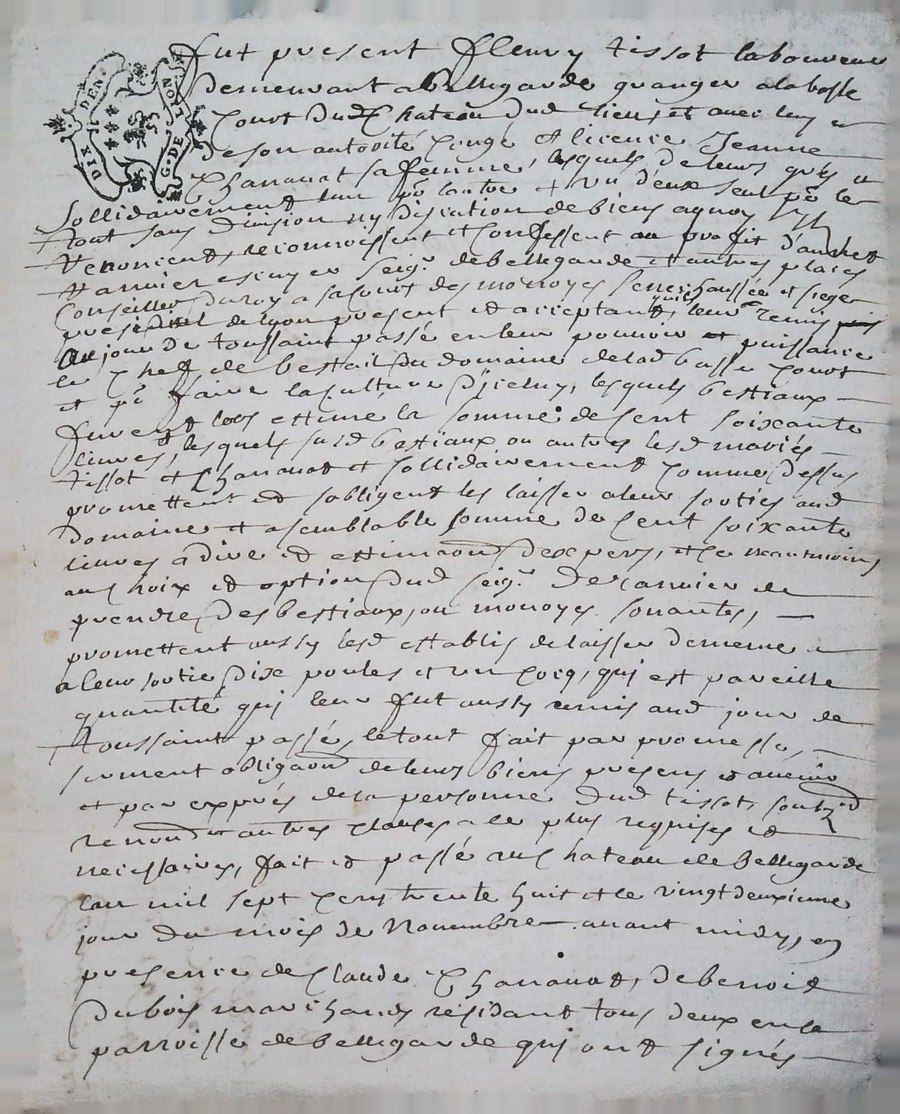 DIX. DEN.
G. DE LYON
fut present fleury tissot laboureur
demeurant a Bellegarde granger a la basse
Court dud Chateau dud lieu, et avec luy
de son autorité congé et licence Jeanne
Chanavat sa femme, lesquels de leurs grés et
sollidairement l'un po l'autre et un d'eux seul po le
tout sans division ny discution de biens a quoy ils
renoncent, reconnoissent et confessent au profit d'
escuyer seigr de bellegarde et autres places
Conseiller du roy a la court des monoyes senechaussée et siege
presidial de lyon present et acceptant, quil leur remis
au jour de toussaint passé en leur pouvoir et puissance
le cheff de bestail du domaine de lad basse court
et po faire la culture d'iceluy, lesquels bestiaux
furent lors estimé la somme de cent soixante
livres, lesquels susd bestiaux ou autres lesd mariés
tissot et Chanavat et sollidairement comme dessus
promettent et sobligent les laisser a leur sorties aud
domaine et a semblable somme de cent soixante
livres a dire et estimaon dexpers, et ce neantmoins
au choix et option dud seigr de
prendre des bestiaux, ou monoyes sonantes,
promettent aussy lesd establis de laisser de meme
a leur sortie dix poules et un cocq, qui est pareille
quantité qui leur fut aussy remis aud jour de
toussaint passé, le tout fait par promesse,
serment obligaon de leurs biens presens et avenir
et par exprés de la personne dud tissot,
renonc et autres clauses a ce plus requises et
necessaires, fait et passé au Chateau de Bellegarde
l'an mil sept cens trente huit et le vingt deuxieme
jour du mois de Novembre avant midy, en
presence de Claude Chanavat, de benoit
Dubois marchands résidant tous deux en la
parroisse de bellegarde qui ont signés